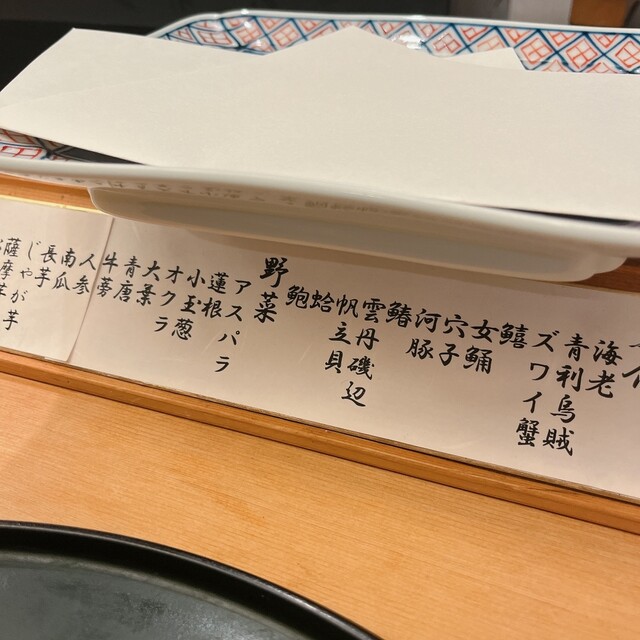 海老
青利烏賊
ズワイ蟹
鱚
女鯒
穴子
河豚
鰆
雲丹磯辺
帆立貝
蛤
鮑
野菜
アスパラ
蓮根
小玉葱
オクラ
大葉
青唐
牛蒡
人参
南瓜
長芋
じゃが芋
薩摩芋